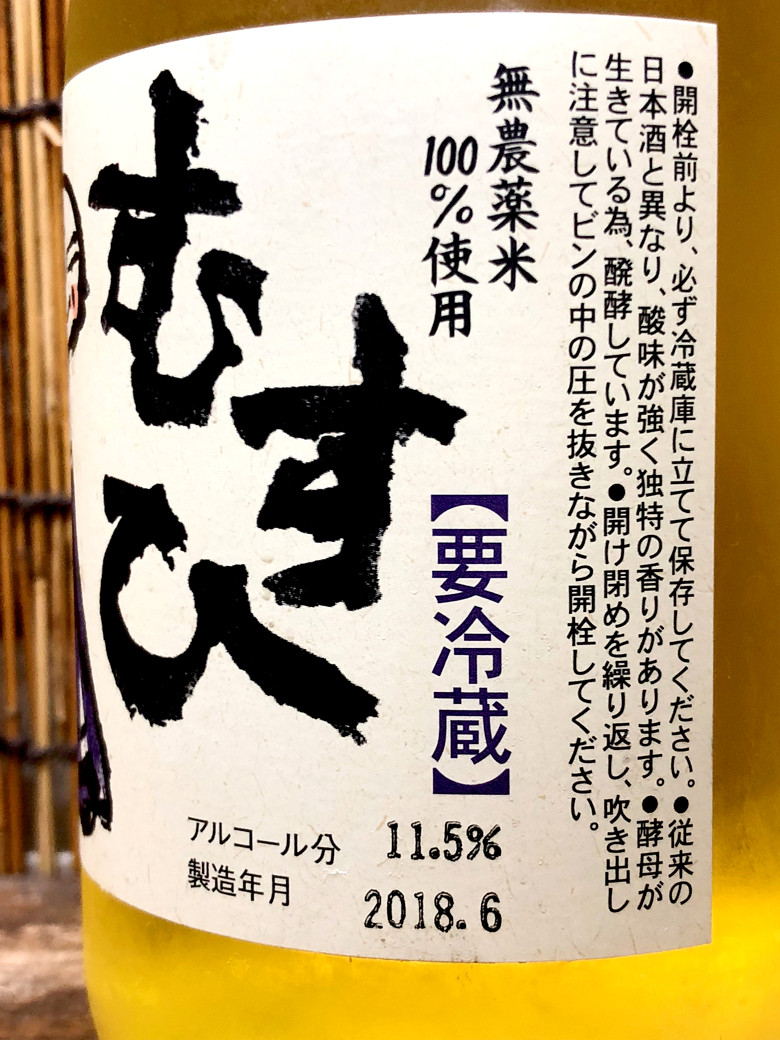 ●開栓前より、必ず冷蔵庫に立てて保存してください。●従来の
日本酒と異なり、酸味が強く独特の香りがあります。●酵母が
生きている為、醗酵しています。●開け閉めを繰り返し、吹き出し
に注意してビンの中の圧を抜きながら開栓してください。
無農薬米
100%使用
【要冷蔵】
むすひ
アルコール分 11.5%
製造年月 2018.6